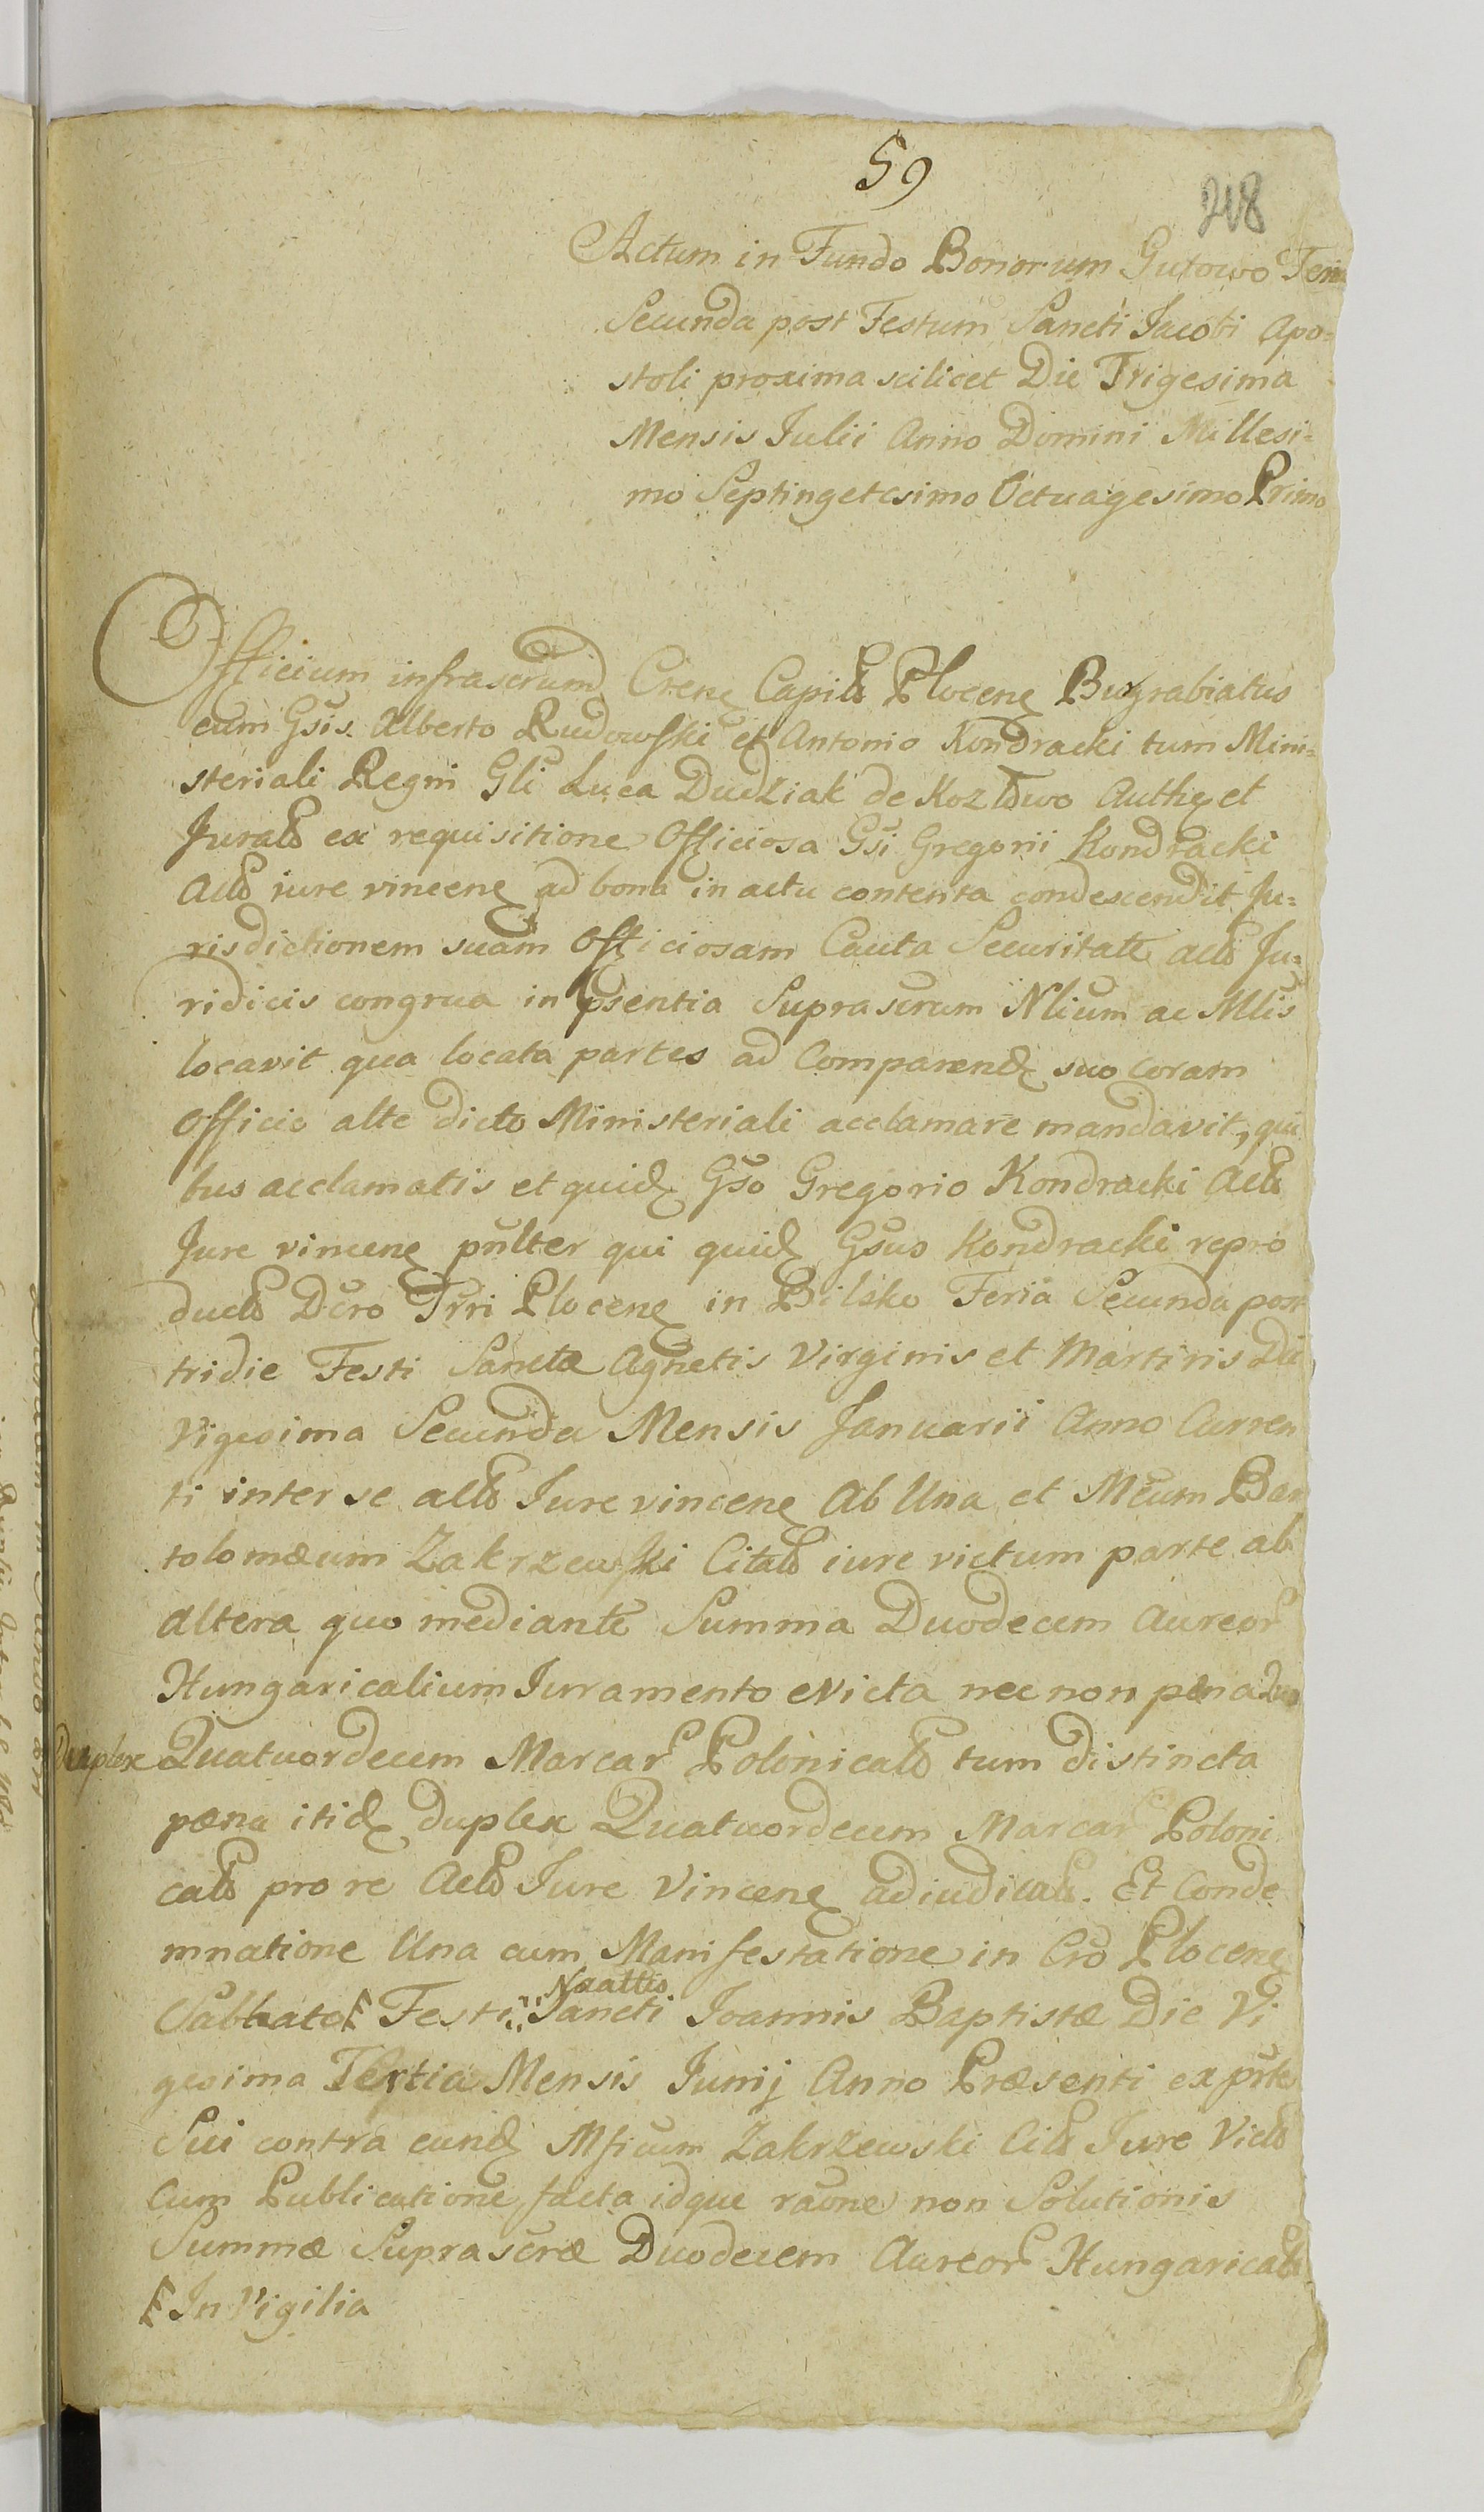 59
218
Actum in Fundo Bonorum Gutowo Feria
Secunda post Festum Sancti Jacobi Apo=
stoli proxima scilicet Die Trigesima
Mensis Julii Anno Domini Millesi=
mo Septingetesimo Octuagesimo Primo
Officium infrascrum Crene Capits Plocene Burgrabiatus
cum Gsis. Alberto Rudowski et Antonio Kondracki tum Mini=
steriali Regni Gli Luca Dudziak de Kozłowo Authe et
Jurato ex requisitione Officiosa Gsi Gregorii Kondracki
Acto iure vincene ad bona in actu contenta condescendit Ju=
risdictionem suam Officiosam Cauta Securitate actis Ju=
ridicis congrua in psentia Suprascrum Nlium ac Mlis
locavit qua locata partes ad Comparend suo coram
Officio alte dicto Ministeriali acclamare mandavit, qui
bus acclamatis et quid Gso Gregorio Kondracki Acto
Jure vincene pnlter qui quid Gsus Kondracki repro
ducto Dcro Trri Plocene in Bilsko Feria Secunda post
tridie Festi Sanctæ Agnetis Virginis et Martiris Die
Vigesima Secunda Mensis Januarii Anno Curren
ti inter se acto Jure vincene Ab Una et Mcum Bar
tolomæum Zakrzewski Citato iure victum parte ab
altera quo mediante Summa Duodecem Aureor
Hungaricalium Juramento evicta nec non pena
duplex Quatuordecem Marcar Polonicals tum distincta
pœna itid duplex Quatuordecem Marcar Poloni
cals pro re Acto Jure Vincene adiudicats. Et Conde
mnatione Una cum Manifestatione in Cro Plocene
Naattis
Sabbato Festi Sancti Joannis Baptistæ Die Vi
gesima Tertia Mensis Junij Anno Præsenti ex prte
Sui contra eund Mficum Zakrzewski Cito Jure Victo
Cum Publicatione facta idque raone non Solutionis
Summæ Suprascræ Duodecem Aureor Hungaricals
In Vigilia